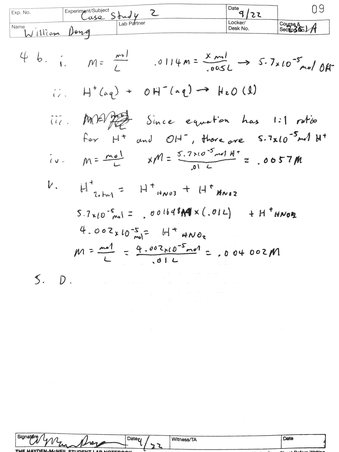 Exp. No.
Experiment/Subject Case Study 2
Date 9/22
09
Name William Dong
Lab Partner
Locker/Desk No.
Course &
4 b. i. M = mol/L .0114M = x mol/.005L → 5.7x10⁻⁵ mol OH⁻
ii. H⁺(aq) + OH⁻(aq) → H₂O (l)
iii. Since equation has 1:1 ratio
for H⁺ and OH⁻, there are 5.7x10⁻⁵ mol H⁺
iv. M = mol/L xM = 5.7x10⁻⁵ mol H⁺/.01 L = .0057M
v. H⁺ total = H⁺ HNO3 + H⁺ HNO2
5.7x10⁻⁵ mol = x (.01L) + H⁺ HNO2
4.002x10⁻⁵ mol = H⁺ HNO2
M = mol/L = 4.002x10⁻⁵ mol/.01L = .004002M
5. D.
Signature
Date 9/22
Witness/TA
Date
THE HAYDEN-McNEIL STUDENT LAB NOTEBOOK